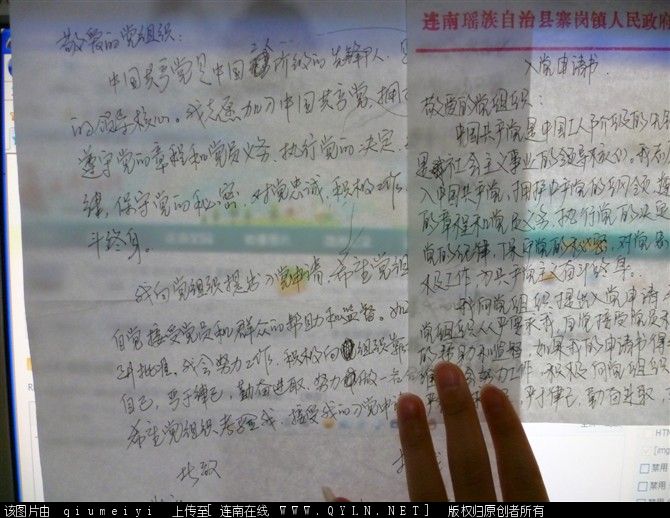 敬爱的党组织：
中国共产党是中国 阶级的先锋
的领导核心。我志愿加入中国共产党,拥
遵守党的章程和党员义务、执行党的决定、
律、保守党的秘密、对党忠诚、积极工作
斗终身。
我向党组织提出入党申请、希望党组
自觉接受党员和群众的帮助和监督。如
批准、我会努力工作、积极向 组织靠
自己、严于律己、勤奋进取、努力 做一名合
希望党组织考 我、接受我的入党申
此致
连南瑶族自治县寨岗镇人民政府
入党申请书.
敬爱的党组织：
中国共产党是中国工人阶级的先锋
是 社会主义事业的领导核心。我志
入中国共产党、拥护 党的纲领、
的章程和党员义务、执行党的决定
党的纪律、保守党的秘密、对党
极工作、为共产主义奋斗终身。
我向党组织提出入党申请
党组织从严要求我、自觉接受党员
的帮助和监督、如果我的申请书得
会努力工作、积极向党组织
严于律己、勤奋进取、
HTM
[img
禁用
禁用
禁用
该图片由 qiumeiyi 上传至[ 连南在线 WWW.QYLN.NET] 版权归原创者所有